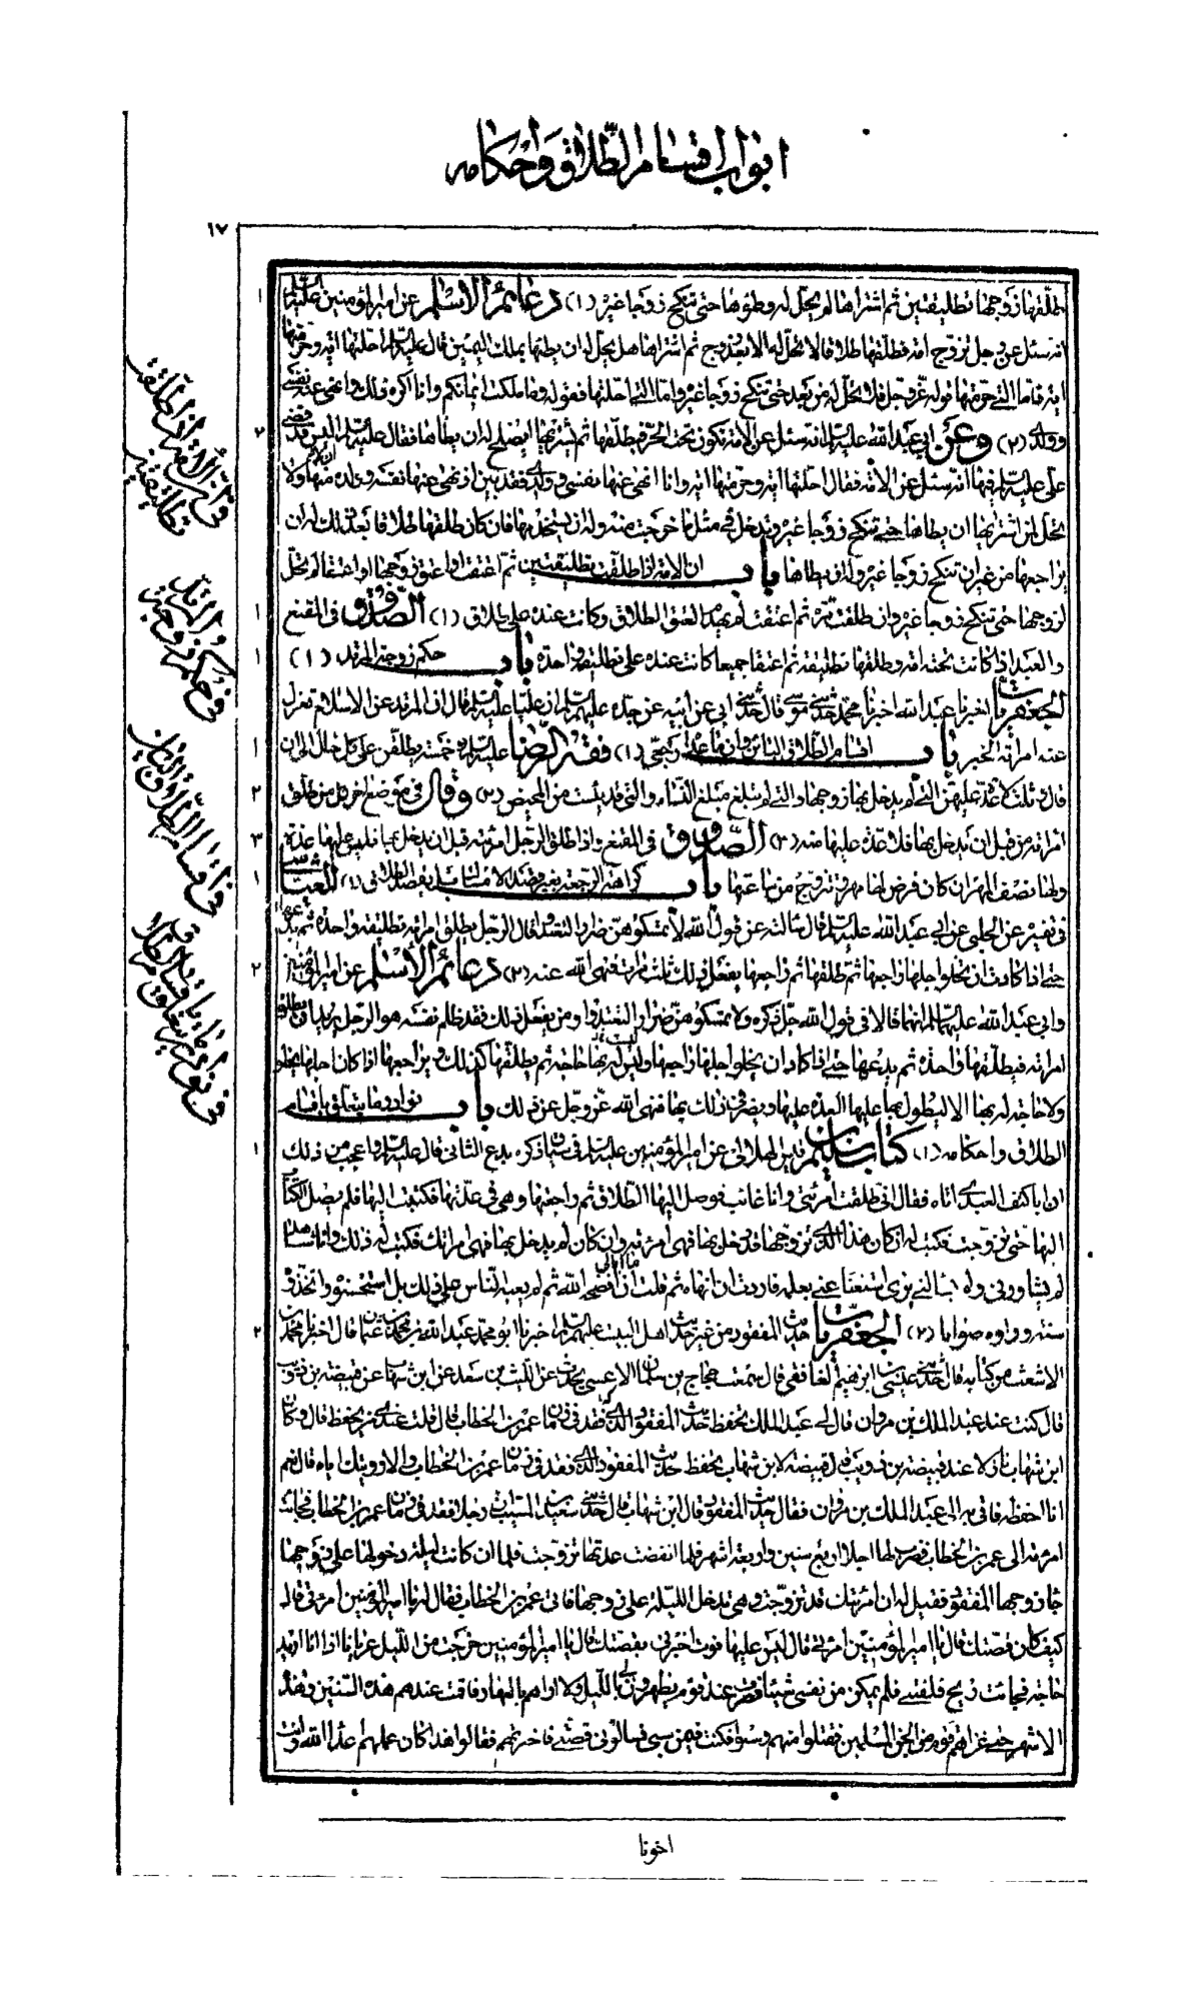 ابواب اقسام الطلاق واحكامه
١٧
طلّقها زوجها تطليقتين ثم اشتراها لم يحلّ له وطؤها حتى تنكح زوجا غيره (١) دعائم الاسلام عن امير المؤمنين عليه السلام
انه سئل عن رجل تزوج امة فطلّقها طلاقا لا تحلّ له الا بعد زوج ثم اشتراها هل يحلّ له ان يطأها بملك اليمين قال عليه السلام احلتها اية وحرمتها
اية فاما التي حرمتها قوله عزوجل فلا تحلّ له من بعد حتى تنكح زوجا غيره واما التي احلتها فقوله وما ملكت ايمانكم وانا اكره ذلك وانهى عنه نفسي
وولدي (٢) وعن ابي عبد الله عليه السلام انه سئل عن الامة تكون تحت الحرّ فيطلّقها ثم يشتريها ايصلح له ان يطأها فقال عليه السلام اليس قد قضى
علي عليه السلام فيها انه سئل عن الامة فقال احلتها اية وحرمتها اية وانا انهى عنها نفسي وولدي فقد بين اذ نهى عنها نفسه وولده انها لا
يحل لمن اشتراها ان يطأها حتى تنكح زوجا غيره ويدخل في مثل ما خرجت منه وله ان يستخدمها فان كان طلقها طلاقا بعد ذلك له ان
يراجعها من غير ان تنكح زوجا غيره وله ان يطأها باب ان الامة اذا طلّقت تطليقتين ثم اعتقت او اعتق زوجها او اعتقا لم تحلّ
لزوجها حتى تنكح زوجا غيره وان طلّقت مرّة ثم اعتقت لم يهدم العتق الطلاق وكانت عنده على طلاق (١) الصّدوق في المقنع
والعبد اذا كانت تحته امة وطلقها تطليقة ثم اعتقا جميعا كانت عنده على تطليقة واحدة باب حكم زوجة المرتد (١)
الجعفريات اخبرنا عبد الله اخبرنا محمد حدثني موسى قال حدثني ابي عن ابيه عن جده عليهم السلام ان عليا عليه السلام قال ان المرتد عن الاسلام تعزل
عنه امراته الخبر باب اقسام الطلاق البائن وان ما عداه رجعي (١) فقه الرضا عليه السلام وخمسة يطلّقن على كل حال الى ان
قال ثلث لا عدّة عليهن التي لم يدخل بها زوجها والتي لم تبلغ مبلغ النساء والتي قد يئست من المحيض (٢) وقال في موضع اخر كل من طلّق
امراته من قبل ان يدخل بها فلا عدّة عليها منه (٣) الصّدوق في المقنع واذا طلق الرجل امرئته قبل ان يدخل بها فليس عليها عدّة
ولها نصف المهر ان كان فرض لها مهر وتتزوج من ساعتها باب كراهة الرجعة بغير قصد الامساك بل بقصد الطلاق (١) العياشي
في تفسيره عن الحلبي عن ابي عبد الله عليه السلام قال سألته عن قول الله لا تمسكوهن ضرارا لتعتدوا قال الرجل يطلق امراته تطليقة واحدة ثم يدعها
حتى اذا كادت ان يخلو اجلها راجعها ثم طلقها ثم راجعها يفعل ذلك ثلث مرات فنهى الله عنه (٢) دعائم الاسلام عن امير المؤمنين
وابي عبد الله عليهما السلام انهما قالا في قول الله جلّ ذكره ولا تمسكوهنّ ضرارا لتعتدوا ومن يفعل ذلك فقد ظلم نفسه هو الرجل يريد ان يطلق
امراته فيطلّقها واحدة ثم يدعها حتى اذا كاد ان يخلو اجلها راجعها وليس له بها حاجة ثم يطلّقها كذلك ويراجعها اذا كان اجلها يخلو
ولا حاجة له بها الا ليطول بها عليها العدة عليها ويضر في ذلك بها فنهى الله عزوجل عن ذلك باب نوادر ما يتعلق باقسام
الطلاق واحكامه (١) كتاب سليم بن قيس الهلالي عن امير المؤمنين عليه السلام في سياق ذكره بدع الثاني قال عليه السلام واعجب من ذلك
ان ابا كنف العبدي اتاه فقال اني طلقت امرئتي وانا غائب فوصل اليها الطلاق ثم راجعتها وهي في عدّتها فكتبت اليها فلم يصل الكتاب
اليها حتى تزوجت فكتب له ان كان هذا الذي تزوجها قد دخل بها فهي امرئته وان كان لم يدخل بها فهي امراتك فكتب له ذلك وانا شاهد
لم يشاورني ولم يسالني يرى استغناه عني بعلمه فاردت ان انهاه ثم قلت ما ابالي ان يفضحه الله ثم لم يعبه الناس على ذلك بل استحسنوه واتخذوه
سنة وراوه صوابا (٢) الجعفريات حديث المفقود من غير حديث اهل البيت عليهم السلام اخبرنا ابو محمد عبد الله بن محمد بن عثمان قال اخبرنا محمد بن محمد بن
الاشعث من كتابه قال حدثني عيسى بن ابرهيم الغافقي قال سمعت حجاج بن سليمان الرعيني يحدث عن الليث بن سعد عن ابن شهاب عن قبيصة بن ذويب
قال كنت عند عبد الملك بن مروان قال لي عبد الملك تحفظ حديث المفقود الذي فقد في زمان عمر بن الخطاب قال قلت عندي من يحفظ قال وكان
ابن شهاب نازلا عند قبيصة بن ذويب فقال قبيصة لابن شهاب تحفظ حديث المفقود الذي فقد في زمان عمر بن الخطاب والا رويتك اياه قال نعم
انا احفظه فاتى به الى عبد الملك بن مروان فقال حديث المفقود قال ابن شهاب قال حدثني سعيد بن المسيب ان رجلا فقد في زمان عمر بن الخطاب فجائت
امرئته الى عمر بن الخطاب فضرب لها اجلا اربع سنين واربعة اشهر فلما انقضت عدتها تزوجت فلما ان كانت ليلة دخولها على زوجها
جاء زوجها المفقود فقيل له ان امرئتك قد تزوجت وهي تدخل الليلة على زوجها فاتى عمر بن الخطاب فقال له يا امير المؤمنين امرئتي قال
كيف كان قصتك قال يا امير المؤمنين امرئتي قال ليس عليها فوت اخبرني بقصتك قال يا امير المؤمنين خرجت من الليل عريانا اذا انا اريد
حاجة فجائت ريح فلفتني فلم يمكن من نفسي شيئا فصرت عند قوم يظهرون لي بالليل ولا اراهم بالنهار فاقمت عندهم هذه السنين وهذه
الاشهر حتى غزاهم قوم من الجن المسلمين فقتلوا منهم وسبوا فكنت فيمن سبي فسالوني قصتي فاخبرتهم فقالوا هذا كان عملهم عدّ الله وانت
اخونا
في ان الامة اذا طلّقت تطليقتين
في حكم زوجة المرتد
في اقسام الطلاق البائن
في نوادر ما يتعلق باقسام الطلاق